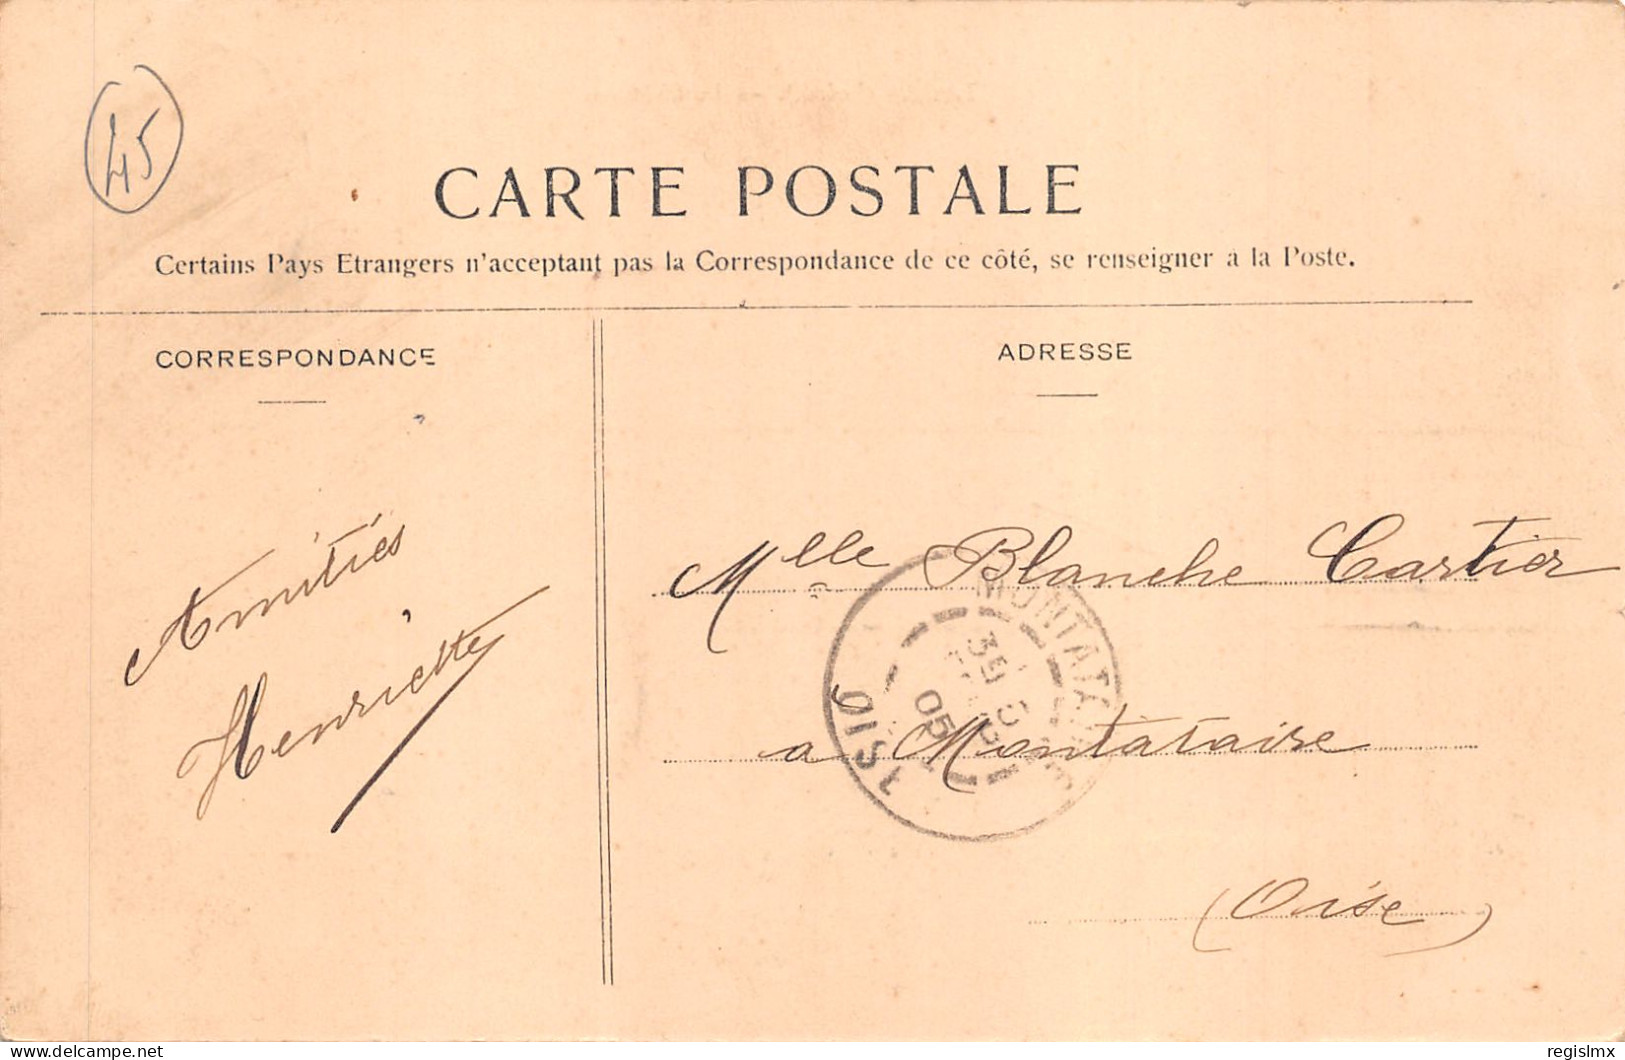 45
CARTE POSTALE
Certains Pays Etrangers n'acceptant pas la Correspondance de ce côté, se renseigner à la Poste.
CORRESPONDANCE
ADRESSE
Amitiés
Henriette
Mlle Blanche Cartier
a Montataire
(Oise)
MONTATAIRE
OISE
05
delcampe.net
regislmx